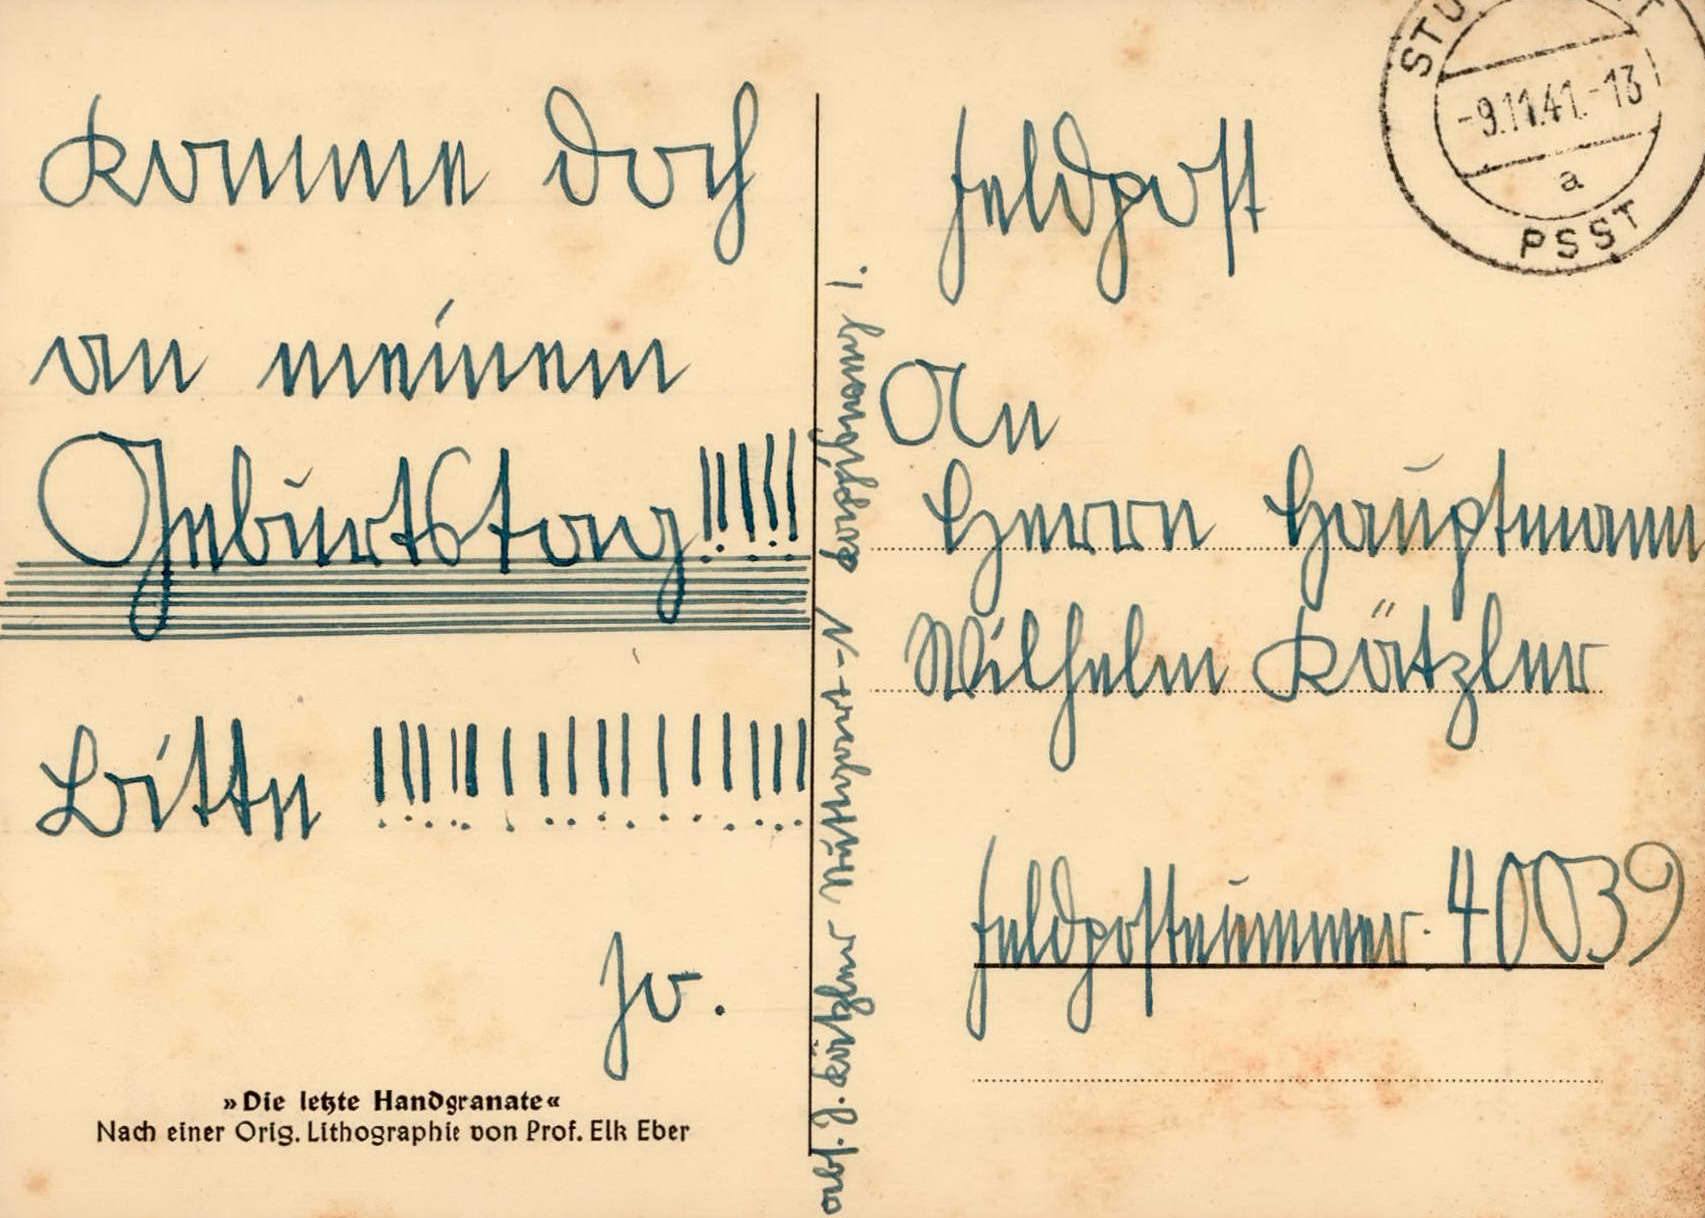 Komme doch
an meinem
Geburtstag!!!!!
Bitte !!!!!!!!!!!!!!!!
Jo.
»Die letzte Handgranate«
Nach einer Orig. Lithographie von Prof. Elk Eber
abs. J. Kätzler
-9.11.41.-13
a
PSST
Feldpost
An
Herrn Hauptmann
Wilhelm Kätzler
Feldpostnummer. 40039